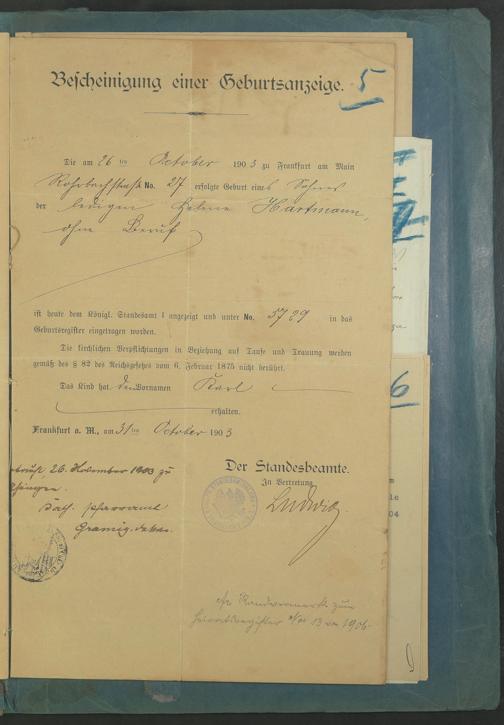 Bescheinigung einer Geburtsanzeige.
5
Die am 26ten October 1903 zu Frankfurt am Main
Rohrbachstraße No. 27 erfolgte Geburt eines Sohnes
der ledigen Helene Hartmann,
ohne Beruf
ist heute dem Königl. Standesamt I angezeigt und unter No. 5729 in das
Geburtsregister eingetragen worden.
Die kirchlichen Verpflichtungen in Beziehung auf Taufe und Trauung werden
gemäß des § 82 des Reichsgesetzes vom 6. Februar 1875 nicht berührt.
Das Kind hat den Vornamen Karl
erhalten.
Frankfurt a. M., am 31ten October 1903
Der Standesbeamte.
In Vertretung
Ludwig.
26. November 1903 zu
Kath. Pfarramt
Randvermerk zum
13 von 1906.
6
04